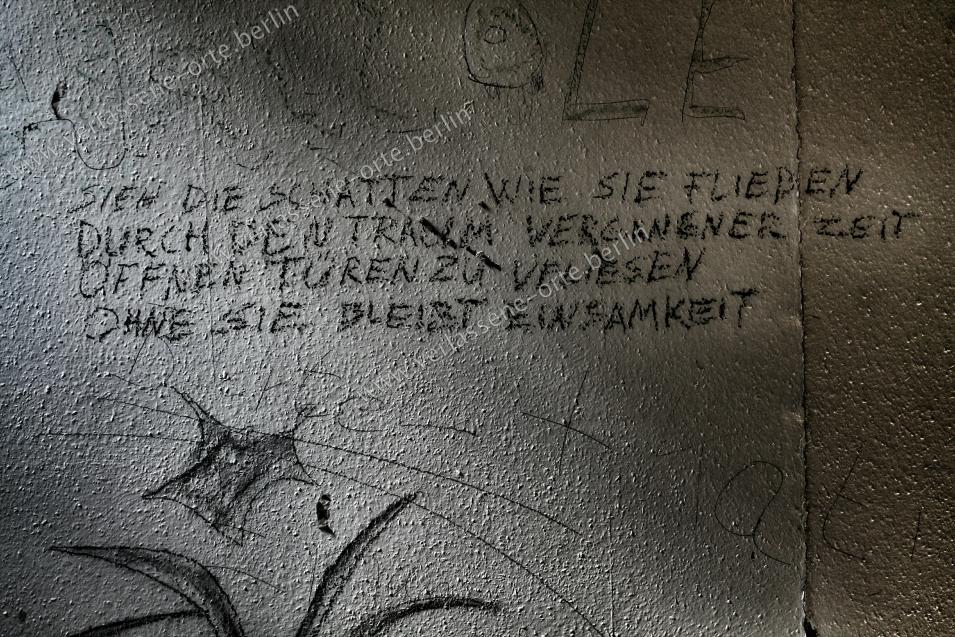 OLE
SIEH DIE SCHATTEN WIE SIE FLIEßEN
DURCH DEN TRAUM VERGANGNER ZEIT
ÖFFNEN TÜREN ZU VERLIESEN
OHNE SIE BLEIBT EINSAMKEIT
www.verlassene-orte.berlin
www.verlassene-orte.berlin
www.verlassene-orte.berlin